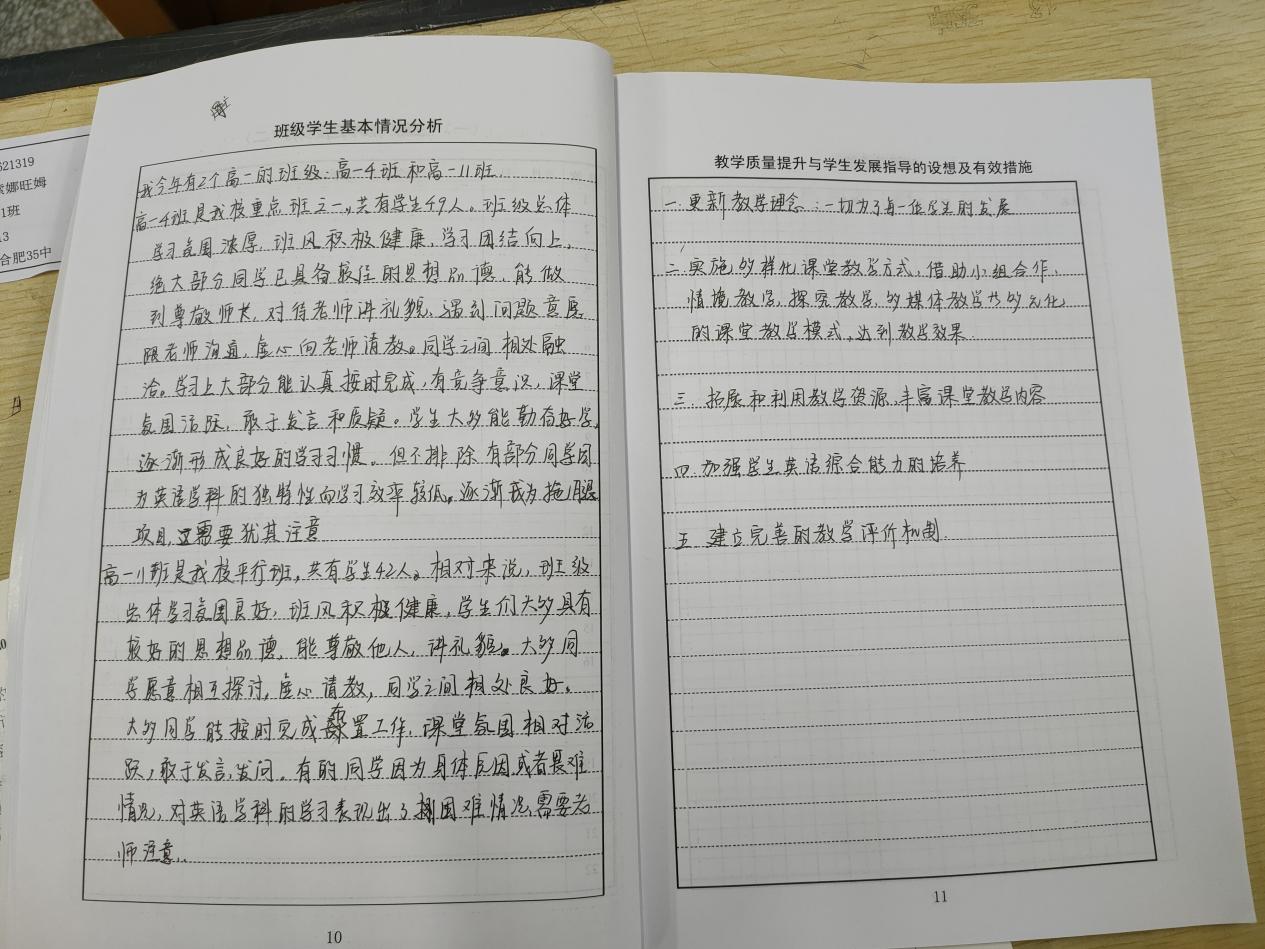 621319
索娜旺姆
1班
13
合肥35中
班级学生基本情况分析
我今年有2个高一的班级：高一4班和高一11班.
高一4班是我校重点班之一，共有学生49人。班级总体
学习氛围浓厚，班风积极健康，学习团结向上，
绝大部分同学已具备较佳的思想品德，能做
到尊敬师长，对待老师讲礼貌，遇到问题意愿
跟老师沟通，虚心向老师请教。同学之间相处融
洽。学习上大部分能认真按时完成，有竞争意识，课堂
氛围活跃，敢于发言和质疑。学生大多能勤奋好学，
逐渐形成良好的学习习惯。但不排除有部分同学因
为英语学科的独特性向学习效率较低，逐渐成为拖腿
项目，这需要犹其注意
高一11班是我校平行班，共有学生42人。相对来说，班级
总体学习氛围良好，班风积极健康，学生们大多具有
较好的思想品德，能尊敬他人，讲礼貌。大多同
学愿意相互探讨，虚心请教，同学之间相处良好。
大多同学能按时完成布置工作，课堂氛围相对活
跃，敢于发言，发问。有的同学因为身体原因或者畏难
情况，对英语学科的学习表现出了困难情况，需要老
师注意.
10
教学质量提升与学生发展指导的设想及有效措施
一.更新教学理念：一切为了每一位学生的发展
二.实施多样化课堂教学方式，借助小组合作，
情境教学，探究教学，多媒体教学等多元化
的课堂教学模式，达到教学效果.
三.拓展和利用教学资源，丰富课堂教学内容
四.加强学生英语综合能力的培养
五.建立完善的教学评价机制.
11